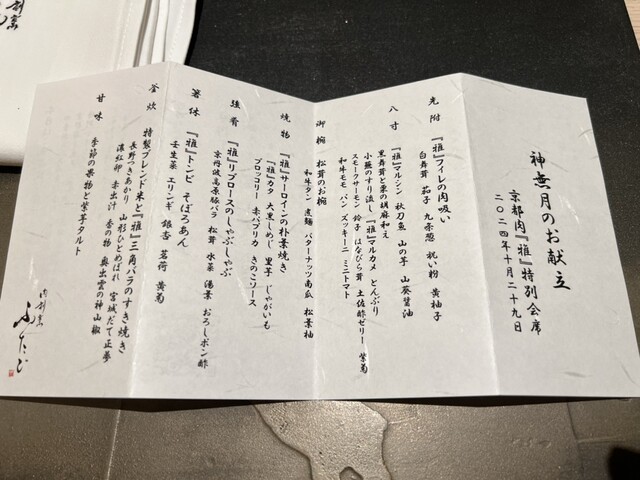 神無月のお献立
京都肉『雅』特別会席
二〇二四年十月二十九日
先附
『雅』フィレの肉吸い
白舞茸 茄子 九条葱 祝い粉 黄柚子
八寸
『雅』マルシン 秋刀魚 山の芋 山葵醤油
黒舞茸と栗の胡麻和え
小蕪のすり流し 『雅』マルカメ とんぶり
スモークサーモン 鈴子 はなびら茸 土佐酢ゼリー 紫菊
和牛モモ パン ズッキーニ ミニトマト
御椀
松茸のお椀
和牛タン 煮麺 バターナッツ南瓜 松葉柚
焼物
『雅』サーロインの朴葉焼き
『雅』カタ 大黒しめじ 里芋 じゃがいも
ブロッコリー 赤パプリカ きのこソース
強肴
『雅』リブロースのしゃぶしゃぶ
京丹波高原豚バラ 松茸 水菜 湯葉 おろしポン酢
箸休
『雅』トンビ そぼろあん
壬生菜 エリンギ 銀杏 茗荷 黄菊
釜炊
特製ブレンド米と『雅』三角バラのすき焼き
長野つきあかり 山形ひとめぼれ 宮城だて正夢
濃紅卵 赤出汁 香の物 奥出雲の神山椒
甘味
季節の果物と紫芋タルト
肉割烹
ふたご